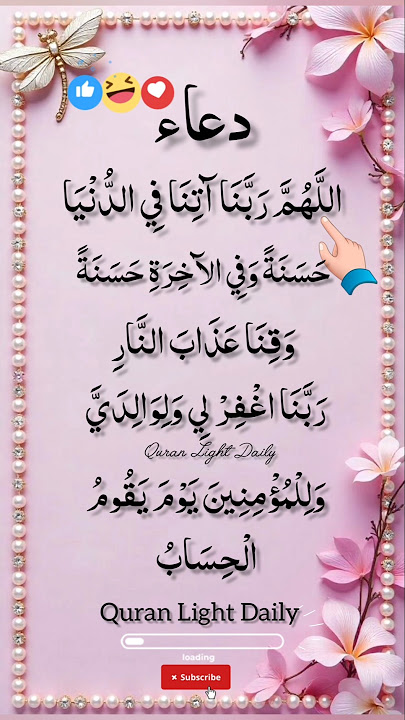 دعاء
اللَّهُمَّ رَبَّنَا آتِنَا فِي الدُّنْيَا
حَسَنَةً وَفِي الآخِرَةِ حَسَنَةً
وَقِنَا عَذَابَ النَّارِ
رَبَّنَا اغْفِرْ لِي وَلِوَالِدَيَّ
Quran Light Daily
وَلِلْمُؤْمِنِينَ يَوْمَ يَقُومُ
الْحِسَابُ
Quran Light Daily
loading
× Subscribe